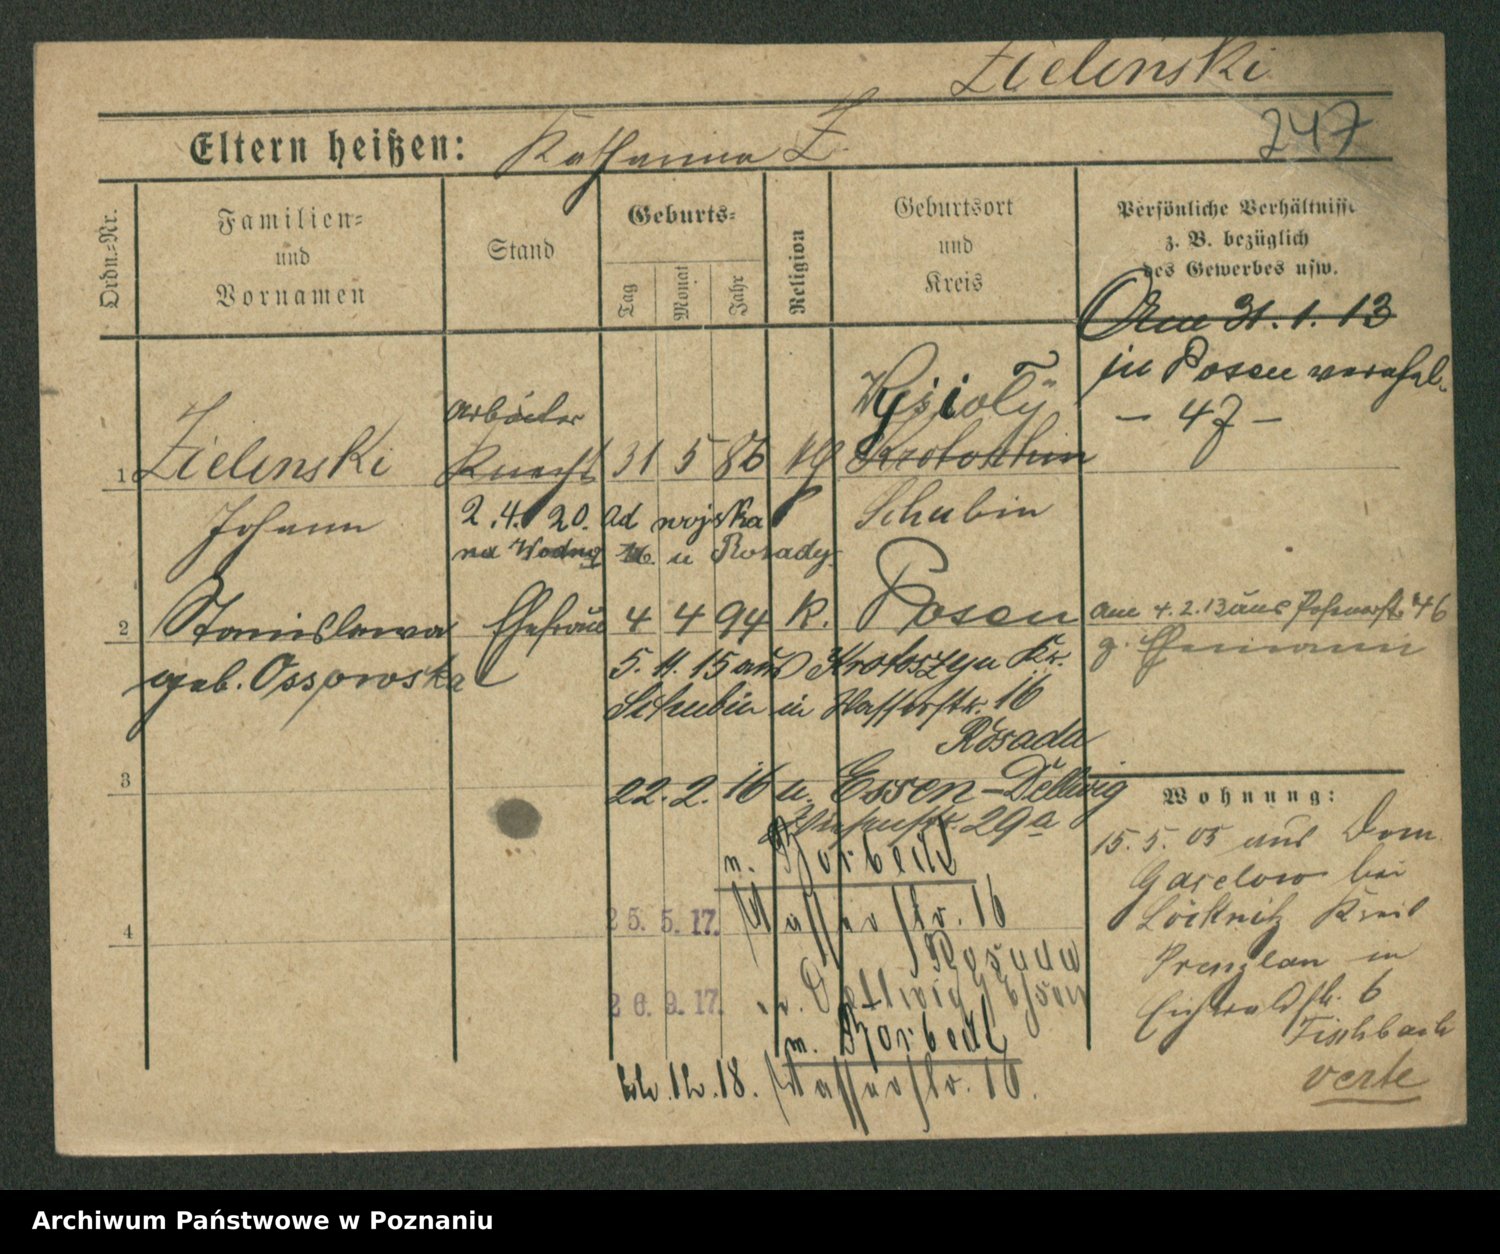 Zielinski
247
Eltern heißen: Katharina Z.
Ordn.-Nr.
Familien-
und
Vornamen
Stand
Geburts-
Tag
Monat
Jahr
Religion
Geburtsort
und
Kreis
Persönliche Verhältnisse
z. B. bezüglich
des Gewerbes usw.
Am 31. 1. 13
in Posen verehel.
– 47 –
arbeiter
1 Zielinski Knecht 31 5 86 Krotoschin
Johann Schubin
2. 4. 20. ad wojska
na Wodną 16 u Rosady
2 Stanislawa Ehefrau 4 4 94 k. Posen
geb. Ossowska
am 4. 2. 13 aus 46
z. Ehemann
5. 11. 15 aus Krotoszyn Kr.
Schubin in Wasserstr. 16
Rosada
3
22. 2. 16 n. Essen-Dellwig
29a
n. Borbeck
25. 5. 17. Wasserstr. 16
Rosada
4
26. 9. 17. n. Dellwig Essen
n. Borbeck
12. 18. Wasserstr. 16.
Wohnung:
15. 5. 05 aus Dom.
bei
Löcknitz Kreis
Prenzlau in
Eichwaldstr. 6
Fischbach
verte
Archiwum Państwowe w Poznaniu